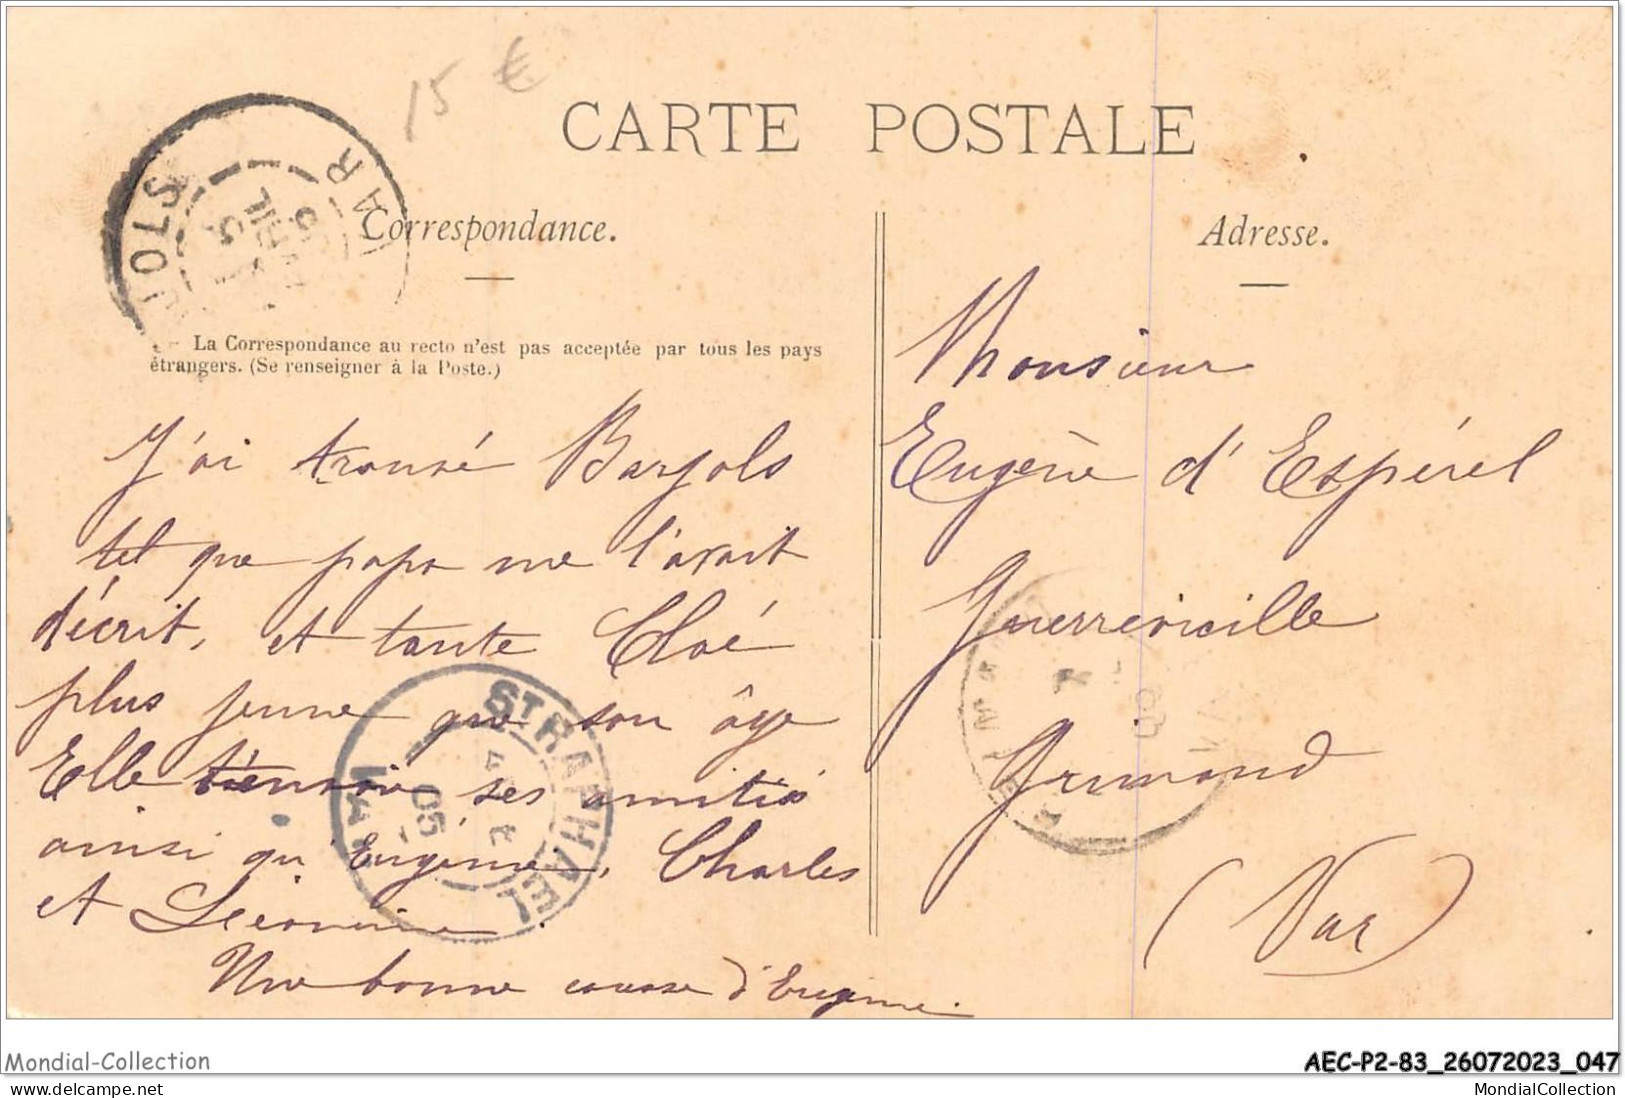 15 €
CARTE POSTALE
Correspondance.
Adresse.
La Correspondance au recto n'est pas acceptée par tous les pays
étrangers. (Se renseigner à la Poste.)
J'ai trouvé Barjols
tel que papa me l'avait
décrit, et tante Cloé
plus jeune que son âge
Elle t'envoie ses amitiés
ainsi qu'Eugénie, Charles
et Léonine.
Une bonne course d'Eugénie.
Monsieur
Eugène d'Espérel
Guerrevieille
Grimaud
(Var)
ST RAPHAEL
VAR
05
VAR
Mondial-Collection
AEC-P2-83_26072023_047
MondialCollection
MondialCollection